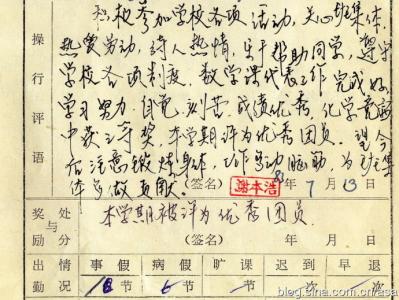 积极参加学校各项活动，关心班集体，
热爱劳动，待人热情，乐于帮助同学，遵守
学校各项制度。数学课代表工作完成好，
学习努力、自觉、刻苦，成绩优秀，化学竞赛
中获三等奖，本学期评为优秀团员。望今
后注意锻炼身体，工作多动脑筋，为班集
体多做贡献
操行评语
(签名) 谢本浩 年 7 月 13 日
奖励与处分
本学期被评为优秀团员
(签名) 年 月 日
出勤情况 事假 病假 旷课 迟到 早退
节 6 节 一 节 次 次
blog.sina.com.cn/asa